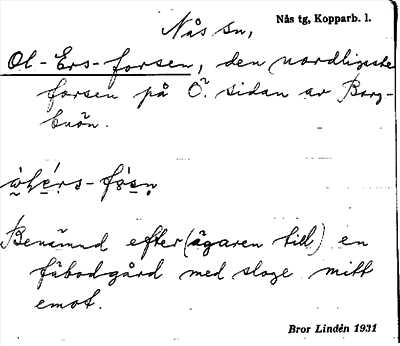 Nås sn,
Nås tg, Kopparb. l.
Ol-Ers-forsen, den nordligaste
forsen på Ö. sidan av Borg-
Benämnd efter (ägaren till) en
fäbodgård med sloge mitt
emot.
Bror Lindén 1931